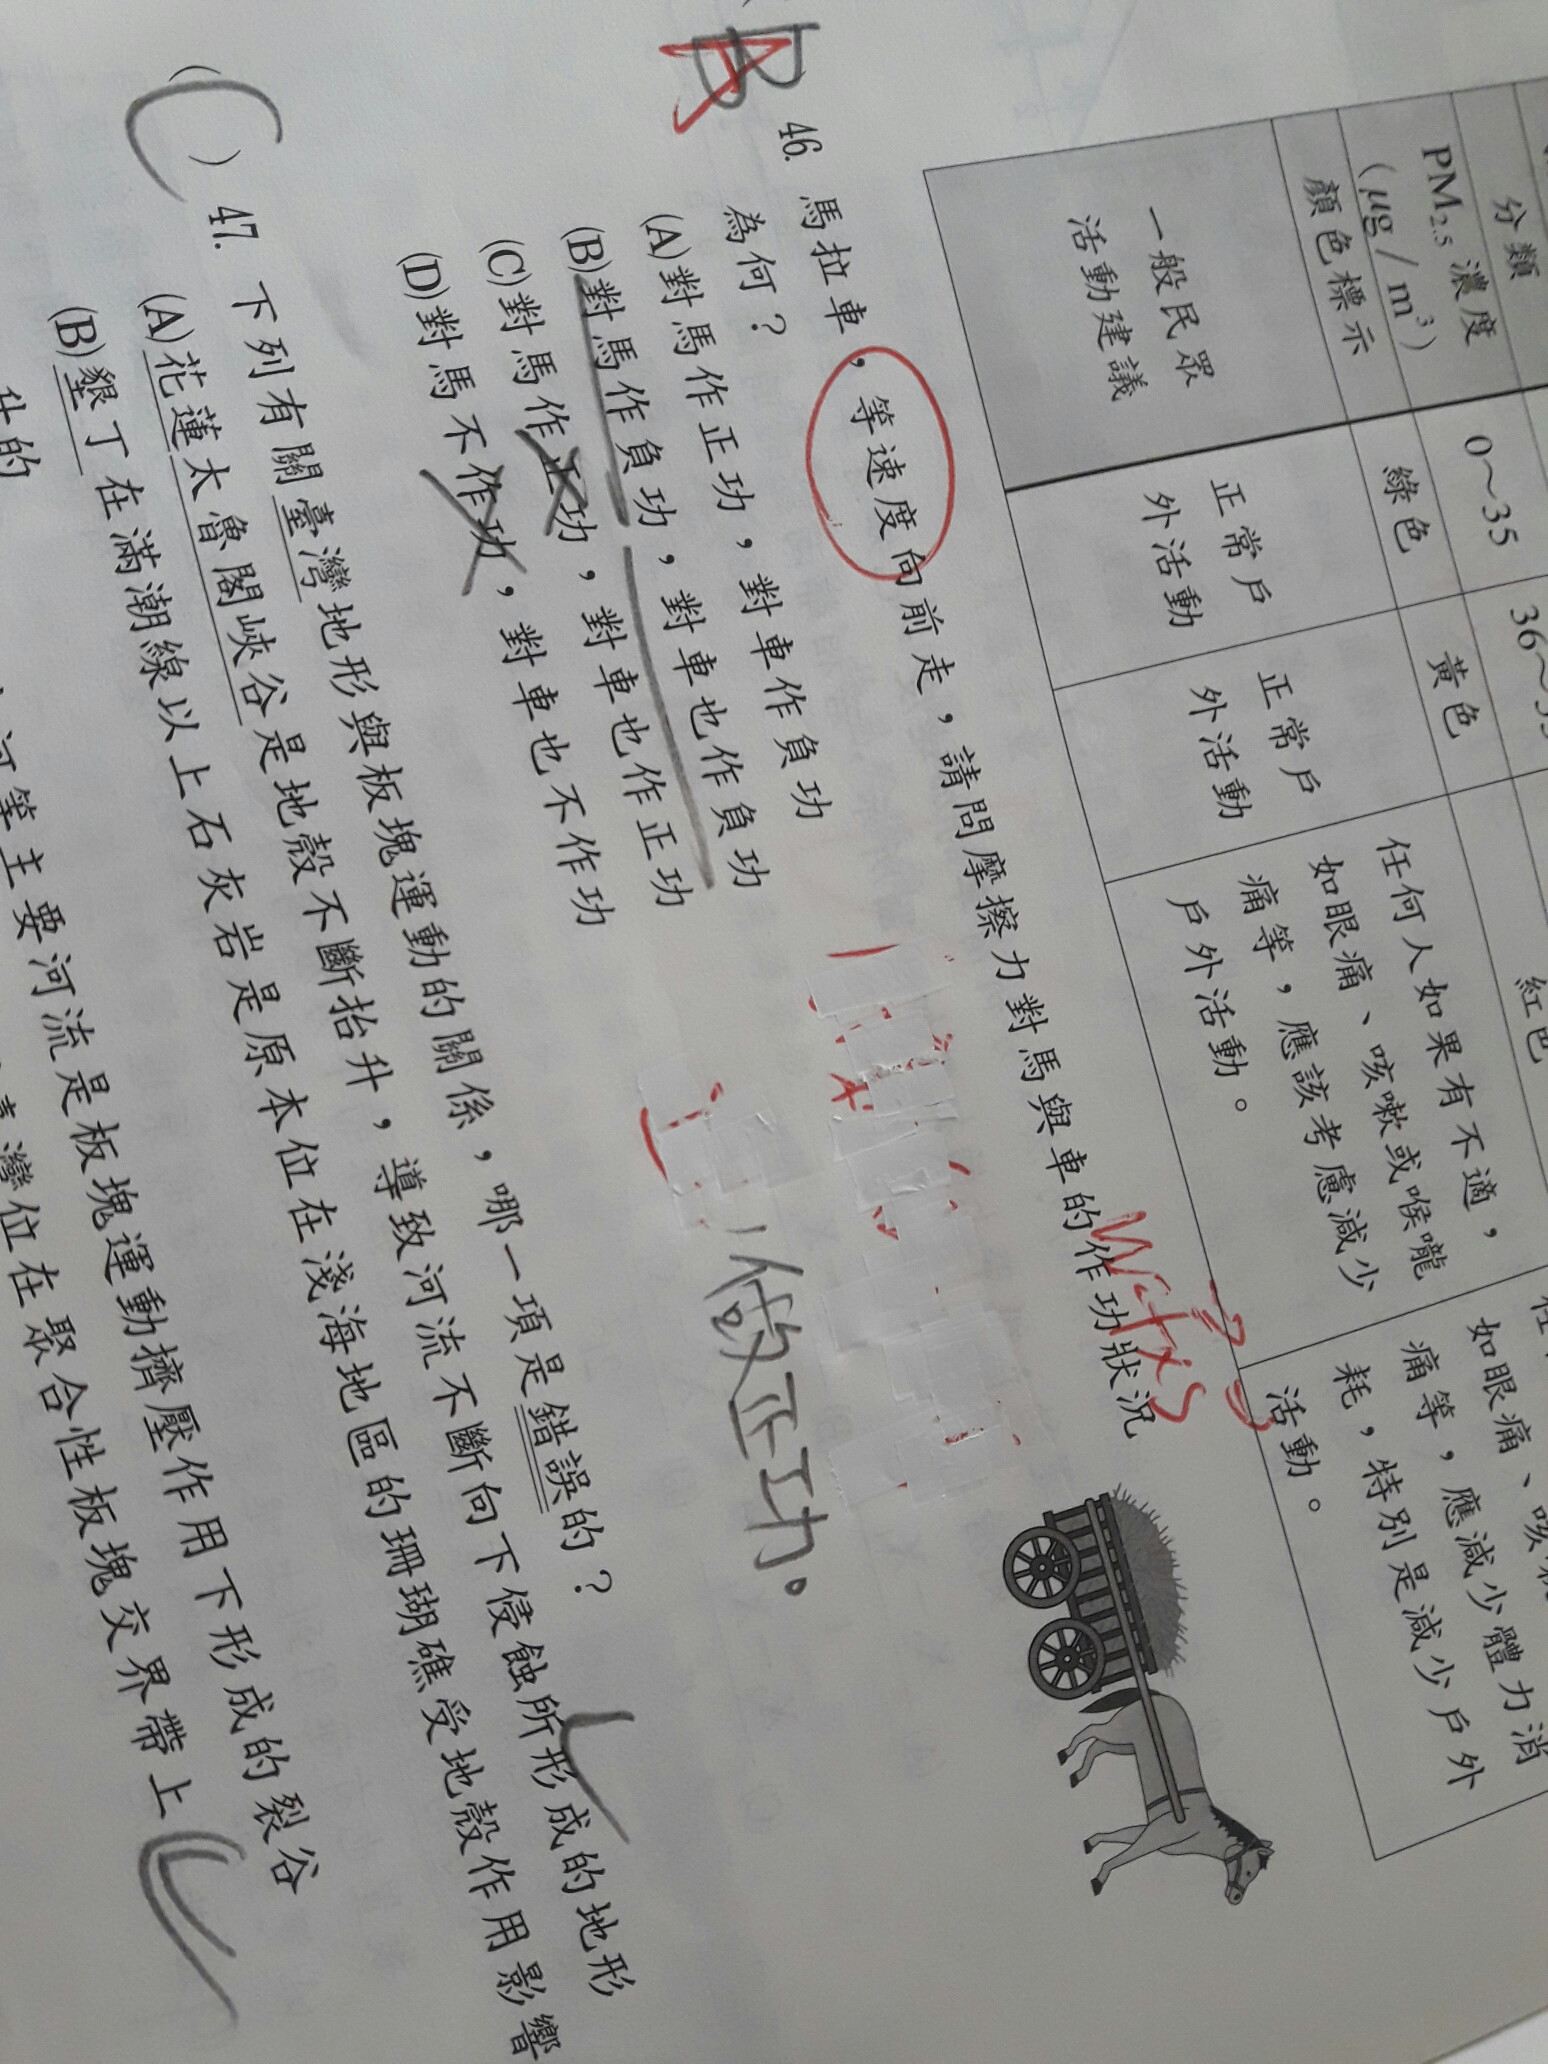 分類
PM2.5 濃度
(μg/m³)
0～35
36～
顏色標示
綠色
黃色
紅色
一般民眾
活動建議
正常戶
外活動
正常戶
外活動
任何人如果有不適，
如眼痛、咳嗽或喉嚨
痛等，應該考慮減少
戶外活動。
如眼痛、咳
痛等，應減少體力消
耗，特別是減少戶外
活動。
B
A
46. 馬拉車，等速度向前走，請問摩擦力對馬與車的作功狀況
為何？
(A)對馬作正功，對車作負功
(B)對馬作負功，對車也作負功
(C)對馬作正功，對車也作正功
(D)對馬不作功，對車也不作功
W=f×S
做正功。
(C) 47. 下列有關臺灣地形與板塊運動的關係，哪一項是錯誤的？
(A)花蓮太魯閣峽谷是地殼不斷抬升，導致河流不斷向下侵蝕所形成的地形
(B)墾丁在滿潮線以上石灰岩是原本位在淺海地區的珊瑚礁受地殼作用影響
升的
河等主要河流是板塊運動擠壓作用下形成的裂谷
灣位在聚合性板塊交界帶上